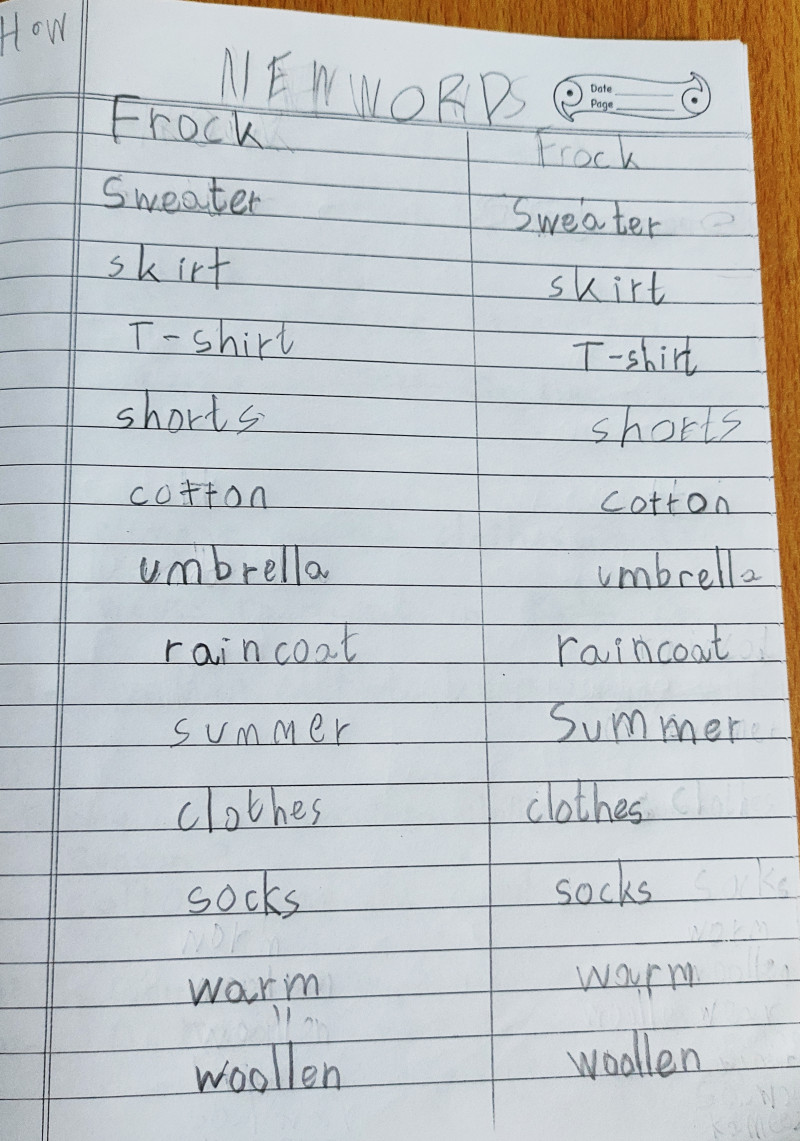 HOW
NEW WORDS
Date
Page
Frock Frock
Sweater Sweater
skirt skirt
T-shirt T-shirt
shorts shorts
cotton cotton
umbrella umbrella
raincoat raincoat
summer Summer
clothes clothes
socks socks
warm warm
woollen woollen